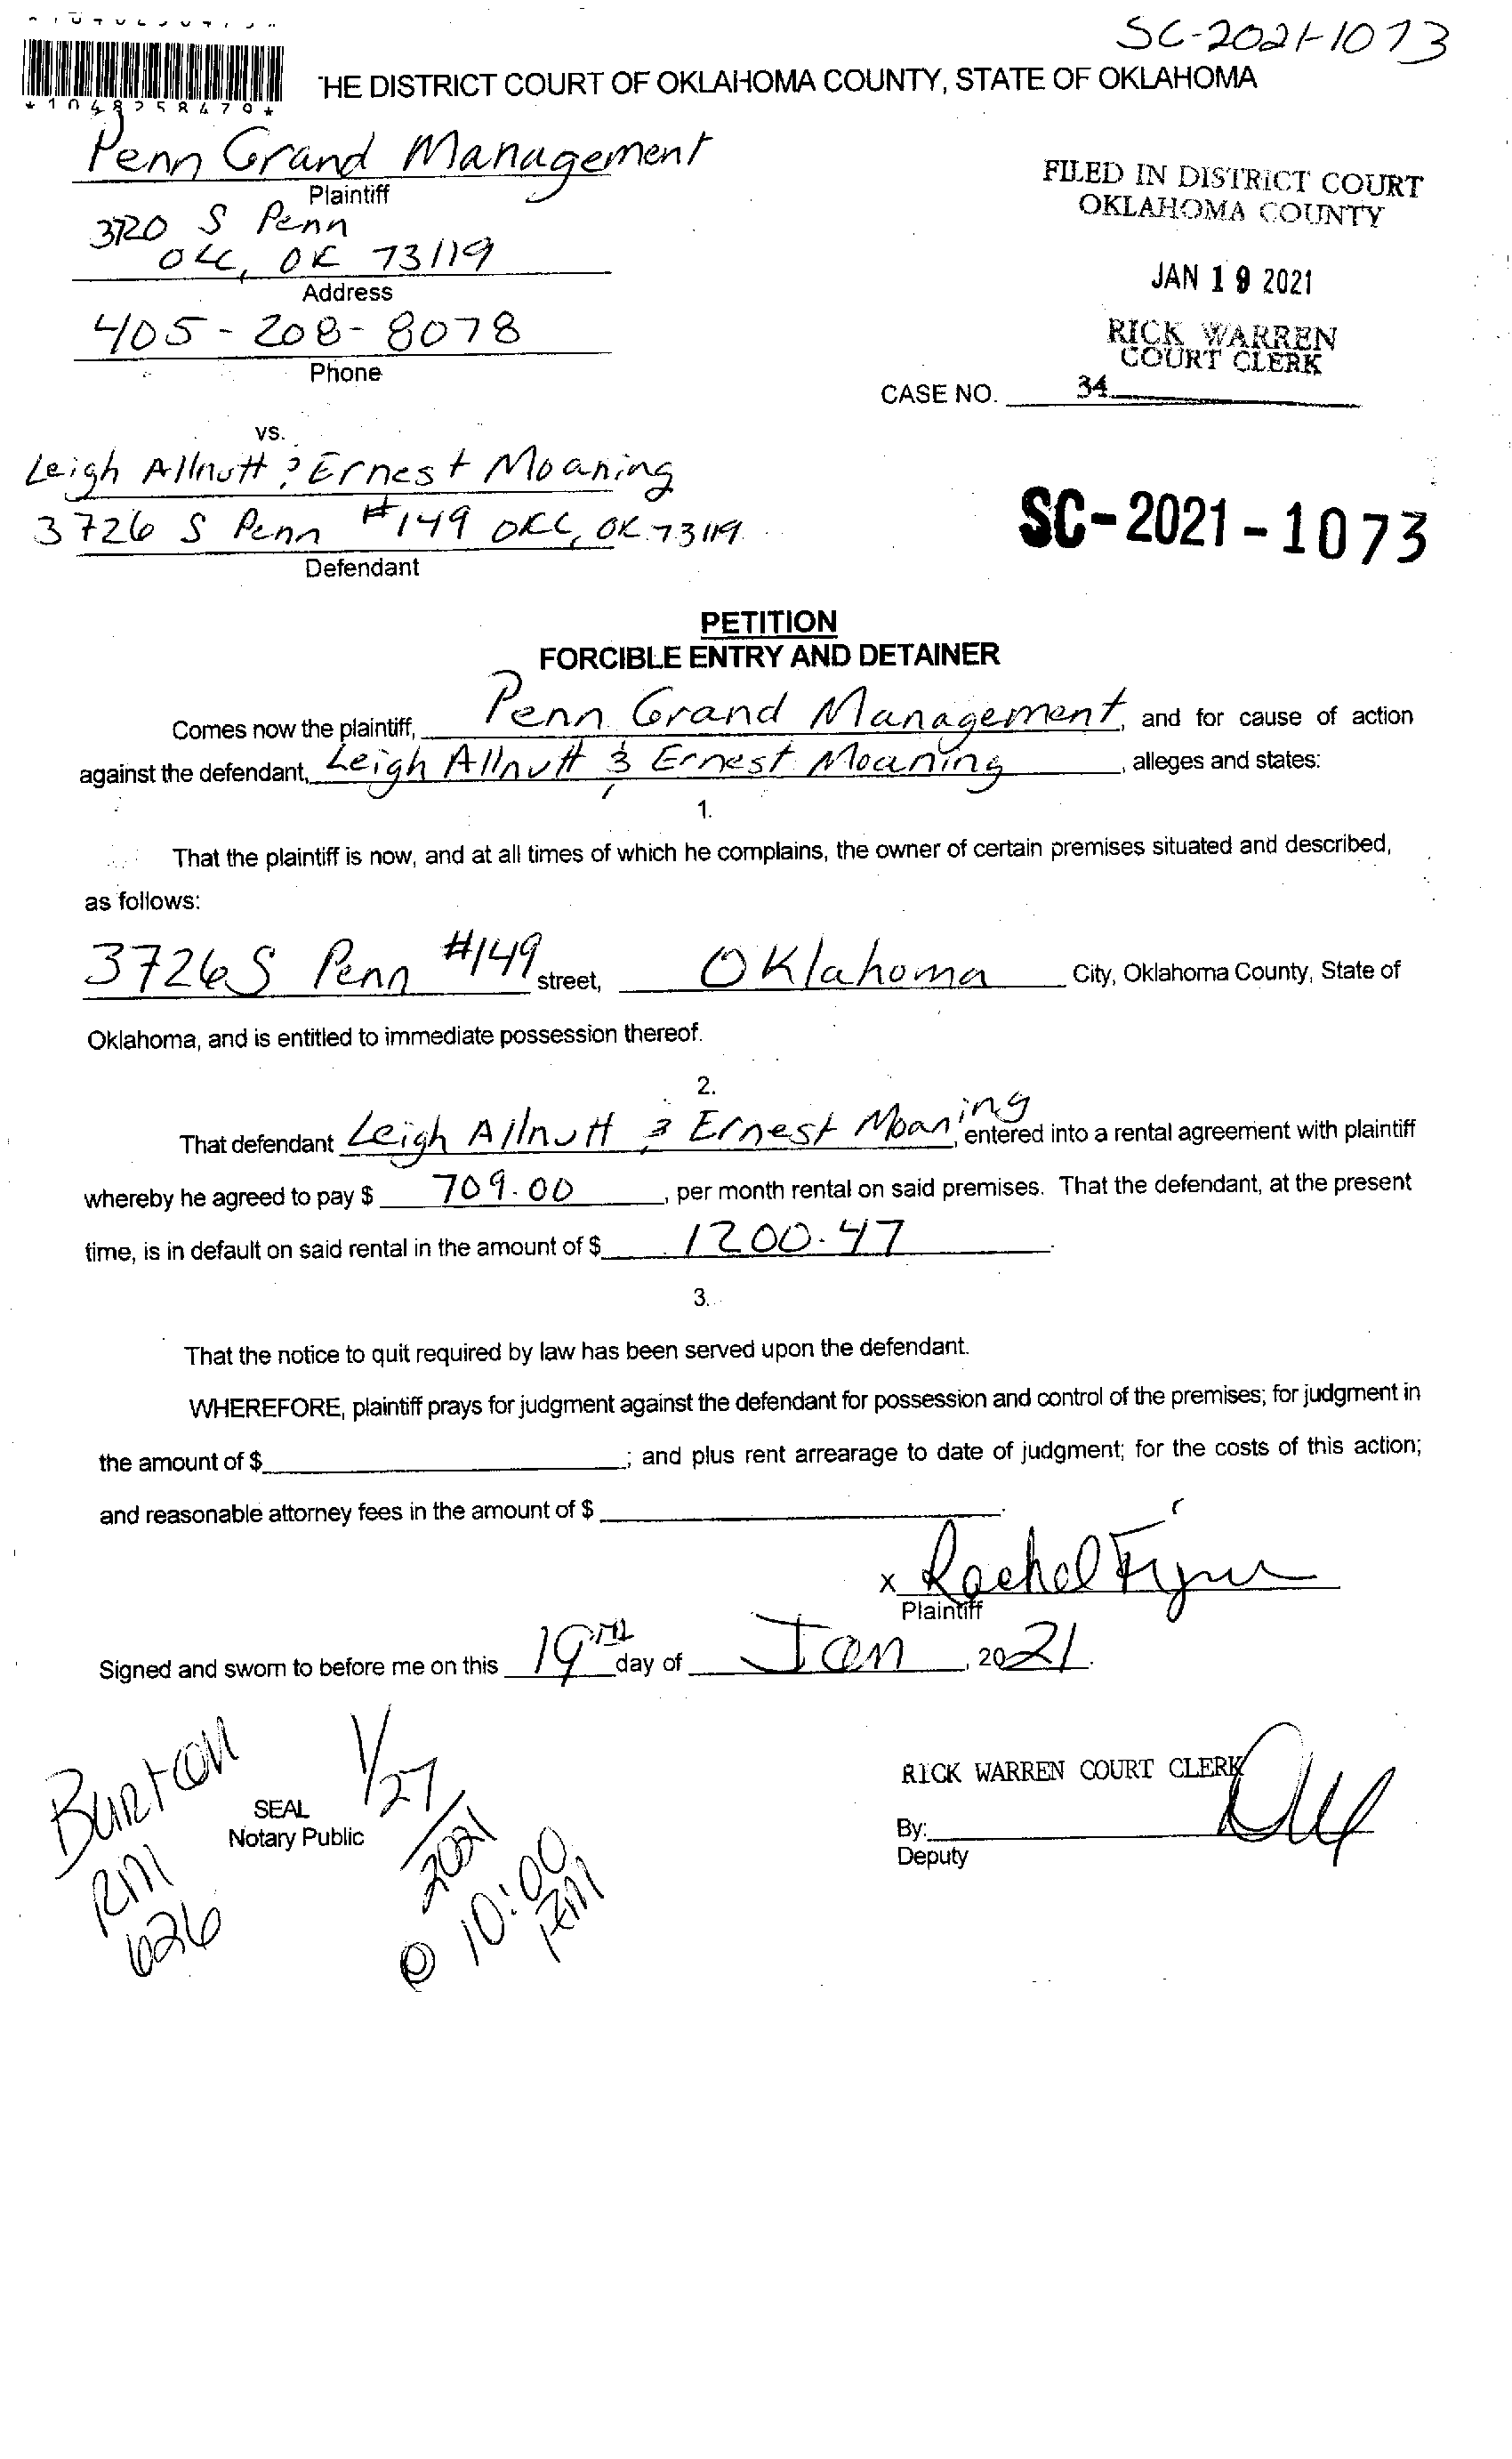 SC-2021-1073
*1048258479*
HE DISTRICT COURT OF OKLAHOMA COUNTY, STATE OF OKLAHOMA
Penn Grand Management
Plaintiff
3720 S Penn
OKC, OK 73119
Address
405-208-8078
Phone
FILED IN DISTRICT COURT
OKLAHOMA COUNTY
JAN 19 2021
RICK WARREN
COURT CLERK
CASE NO. 34
vs.
Leigh Allnutt & Ernest Moaning
3726 S Penn #149 OKC, OK 73119
Defendant
SC-2021-1073
PETITION
FORCIBLE ENTRY AND DETAINER
Comes now the plaintiff, Penn Grand Management, and for cause of action
against the defendant, Leigh Allnutt & Ernest Moaning, alleges and states:
1.
That the plaintiff is now, and at all times of which he complains, the owner of certain premises situated and described,
as follows:
3726 S Penn #149 street, Oklahoma City, Oklahoma County, State of
Oklahoma, and is entitled to immediate possession thereof.
2.
That defendant Leigh Allnutt & Ernest Moaning, entered into a rental agreement with plaintiff
whereby he agreed to pay $ 709.00, per month rental on said premises. That the defendant, at the present
time, is in default on said rental in the amount of $ 1200.47.
3.
That the notice to quit required by law has been served upon the defendant.
WHEREFORE, plaintiff prays for judgment against the defendant for possession and control of the premises; for judgment in
the amount of $; and plus rent arrearage to date of judgment; for the costs of this action;
and reasonable attorney fees in the amount of $.
x Rachel
Plaintiff
Signed and sworn to before me on this 19TH day of Jan, 2021.
Burton
RM
626
SEAL
Notary Public
1/27/2021
@ 10:00
AM
RICK WARREN COURT CLERK
By:
Deputy